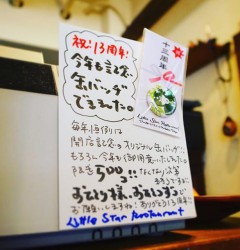 祝!13周年!
今年も記念
缶バッヂ
できました。
毎年恒例の
開店記念のオリジナル缶バッヂ!
もちろん今年も御用意いたしました
500
おひとり様、おひとつずつ
お願いしますね!
Little Star Restaurant
十三周年
Little Star Restaurant